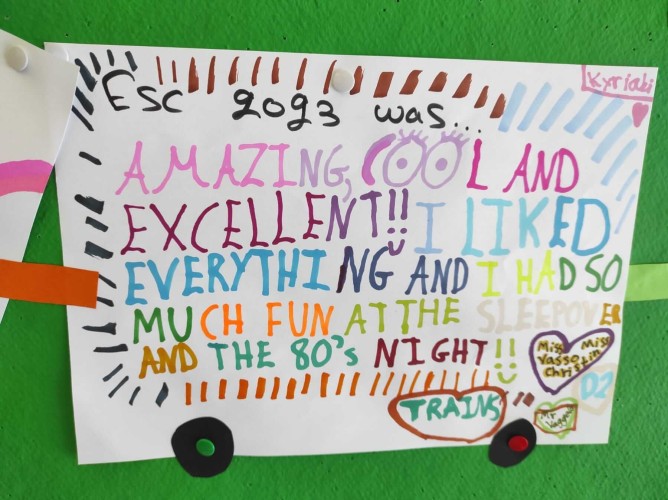 Kyriaki
Esc 2023 was...
AMAZING, COOL AND
EXCELLENT!! I LIKED
EVERYTHING AND I HAD SO
MUCH FUN AT THE SLEEPOVER
AND THE 80's NIGHT!!
Miss Vasso
Miss
Christin
D2
TRAINS
Mr